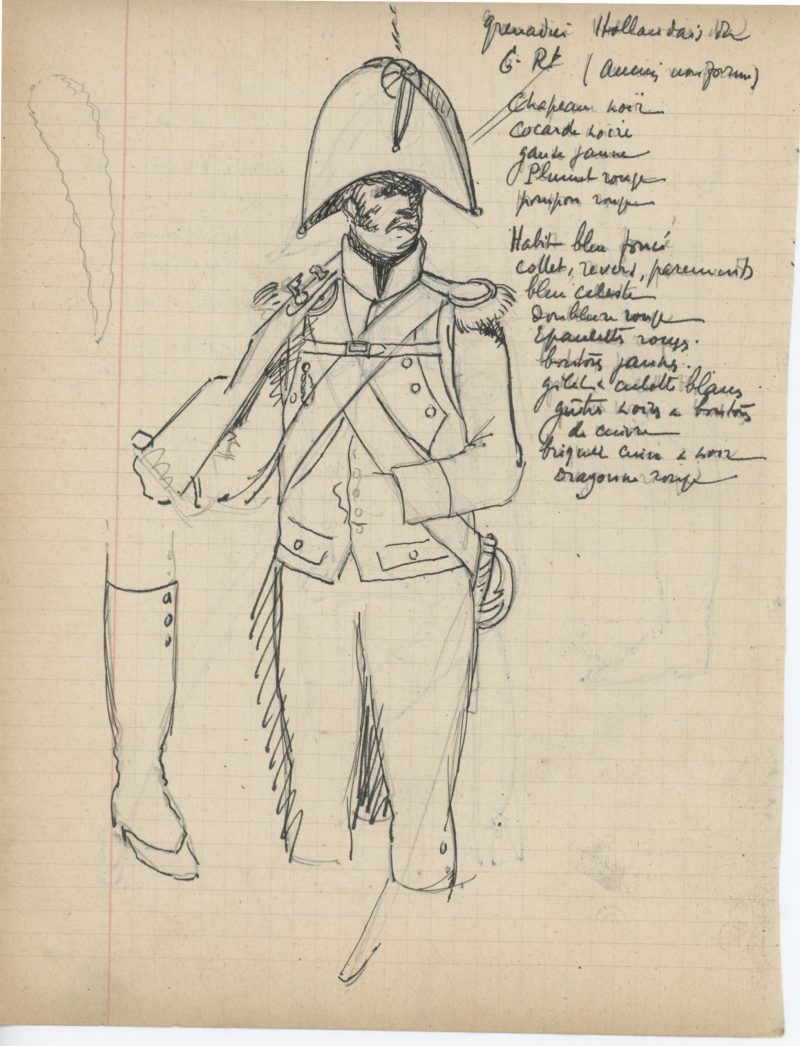 Grenadier Hollandais du
6e Rt (ancien uniforme)
Chapeau noir
Cocarde noire
ganse jaune
Plumet rouge
pompon rouge
Habit bleu foncé
collet, revers, parements
bleu celeste
Doublure rouge
Epaulettes rouges.
boutons jaunes.
gilet & culotte blancs
guêtres noires a boutons
de cuivre
briquet cuir noir
Dragonne rouge